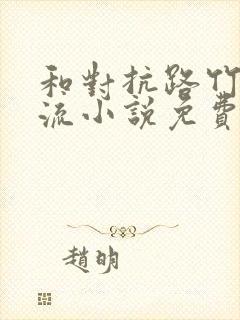 和對抗路竹
流小說免費
趙明